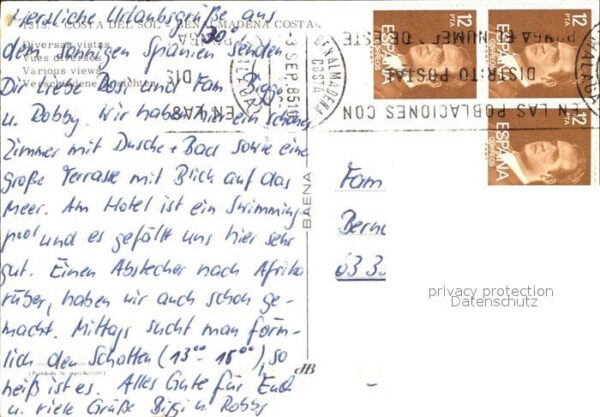 herzliche Urlaubsgrüße aus
4315. - COSTA DEL SOL - BENALMADENA COSTA
dem sonnigen Spanien senden
30°
Diversas vistas
Vues diverses
Various views
Verschiedene Ansichten
Dir liebe Rosi und Fam.
u. Robby. Wir haben hier ein schönes
Zimmer mit Dusche + Bad sowie eine
große Terrasse mit Blick auf das
Meer. Am Hotel ist ein Swimming
pool und es gefällt uns hier sehr
gut. Einen Abstecher nach Afrika
rüber, haben wir auch schon ge-
macht. Mittags sucht man förm-
lich den Schatten (13°° - 18°°), so
heiß ist es. Alles Gute für Euch
u. viele Grüße Biggi u. Robby
BAENA
-3 SEP. 85
BENALMADENA
COSTA
MALAGA
PONGA EL NUMERO DE ESTE
DISTRITO POSTAL
EN LAS POBLACIONES CON
12
PTA
ESPAÑA
CORREOS
12
PTA
ESPAÑA
CORREOS
12
PTA
ESPAÑA
CORREOS
Fam
Berna
63 3
privacy protection
Datenschutz